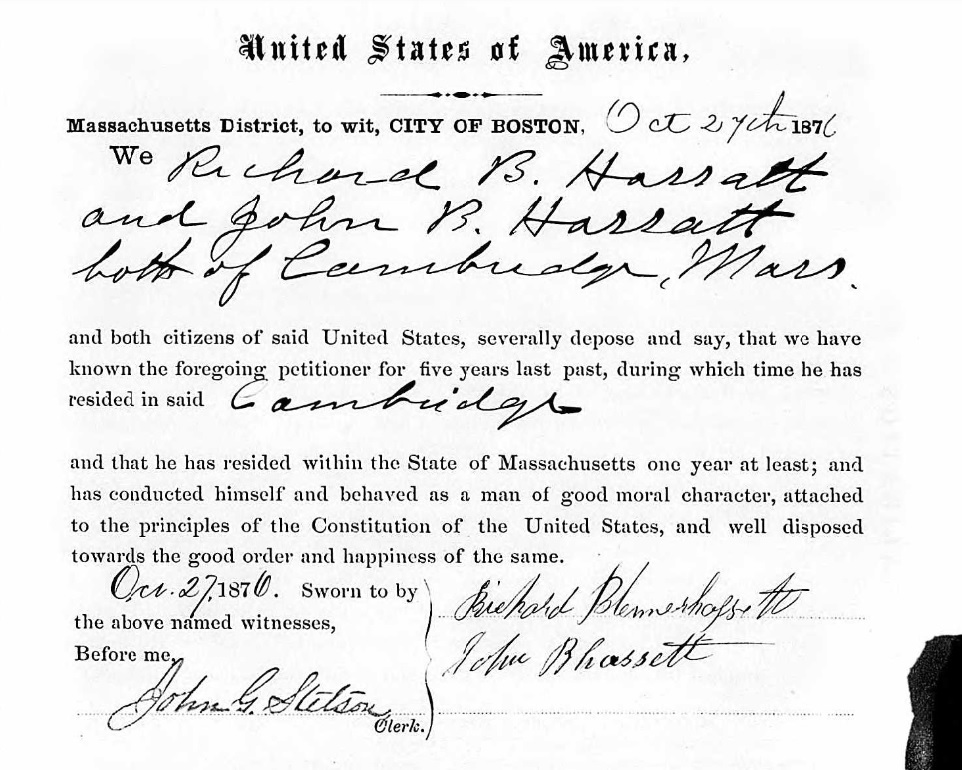 United States of America,
Massachusetts District, to wit, CITY OF BOSTON, Oct 27th 1876
We Richard B. Hassatt
and John B. Hassatt
both of Cambridge, Mass.
and both citizens of said United States, severally depose and say, that we have
known the foregoing petitioner for five years last past, during which time he has
resided in said Cambridge
and that he has resided within the State of Massachusetts one year at least; and
has conducted himself and behaved as a man of good moral character, attached
to the principles of the Constitution of the United States, and well disposed
towards the good order and happiness of the same.
Oct. 27, 1876. Sworn to by
the above named witnesses,
Before me,
John G. Stetson
Clerk.
Richard Blennerhassett
John Bhassett